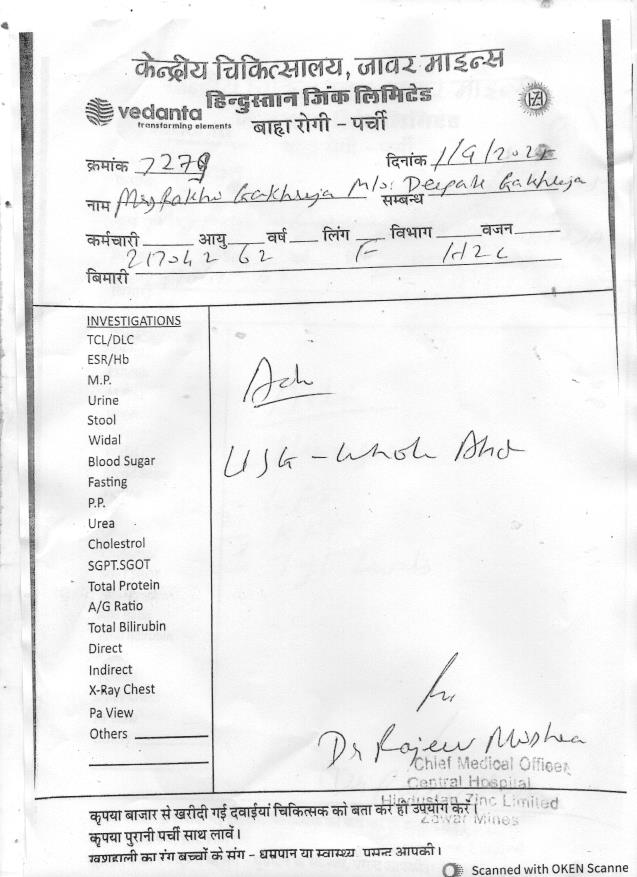 केन्द्रीय चिकित्सालय, जावर माइन्स
हिन्दुस्तान जिंक लिमिटेड
vedanta
transforming elements
बाह्य रोगी - पर्ची
HZL
क्रमांक 7279 दिनांक 1/9/202
नाम Rakhi Gakhreja सम्बन्ध M/o: Deepak Gakhreja
कर्मचारी आयु वर्ष लिंग विभाग वजन
217042 62 F HZL
बिमारी
INVESTIGATIONS
TCL/DLC
ESR/Hb
M.P.
Urine
Stool
Widal
Blood Sugar
Fasting
P.P.
Urea
Cholestrol
SGPT.SGOT
Total Protein
A/G Ratio
Total Bilirubin
Direct
Indirect
X-Ray Chest
Pa View
Others
Adv
USG - Whole Abd
Dr Rajeev Mishra
Chief Medical Officer
Central Hospital
Hindustan Zinc Limited
Zawar Mines
कृपया बाजार से खरीदी गई दवाईयां चिकित्सक को बता कर ही उपयोग करें।
कृपया पुरानी पर्ची साथ लावें।
खुशहाली का रंग बच्चों के संग - धूम्रपान या स्वास्थ्य, पसन्द आपकी।
Scanned with OKEN Scanne